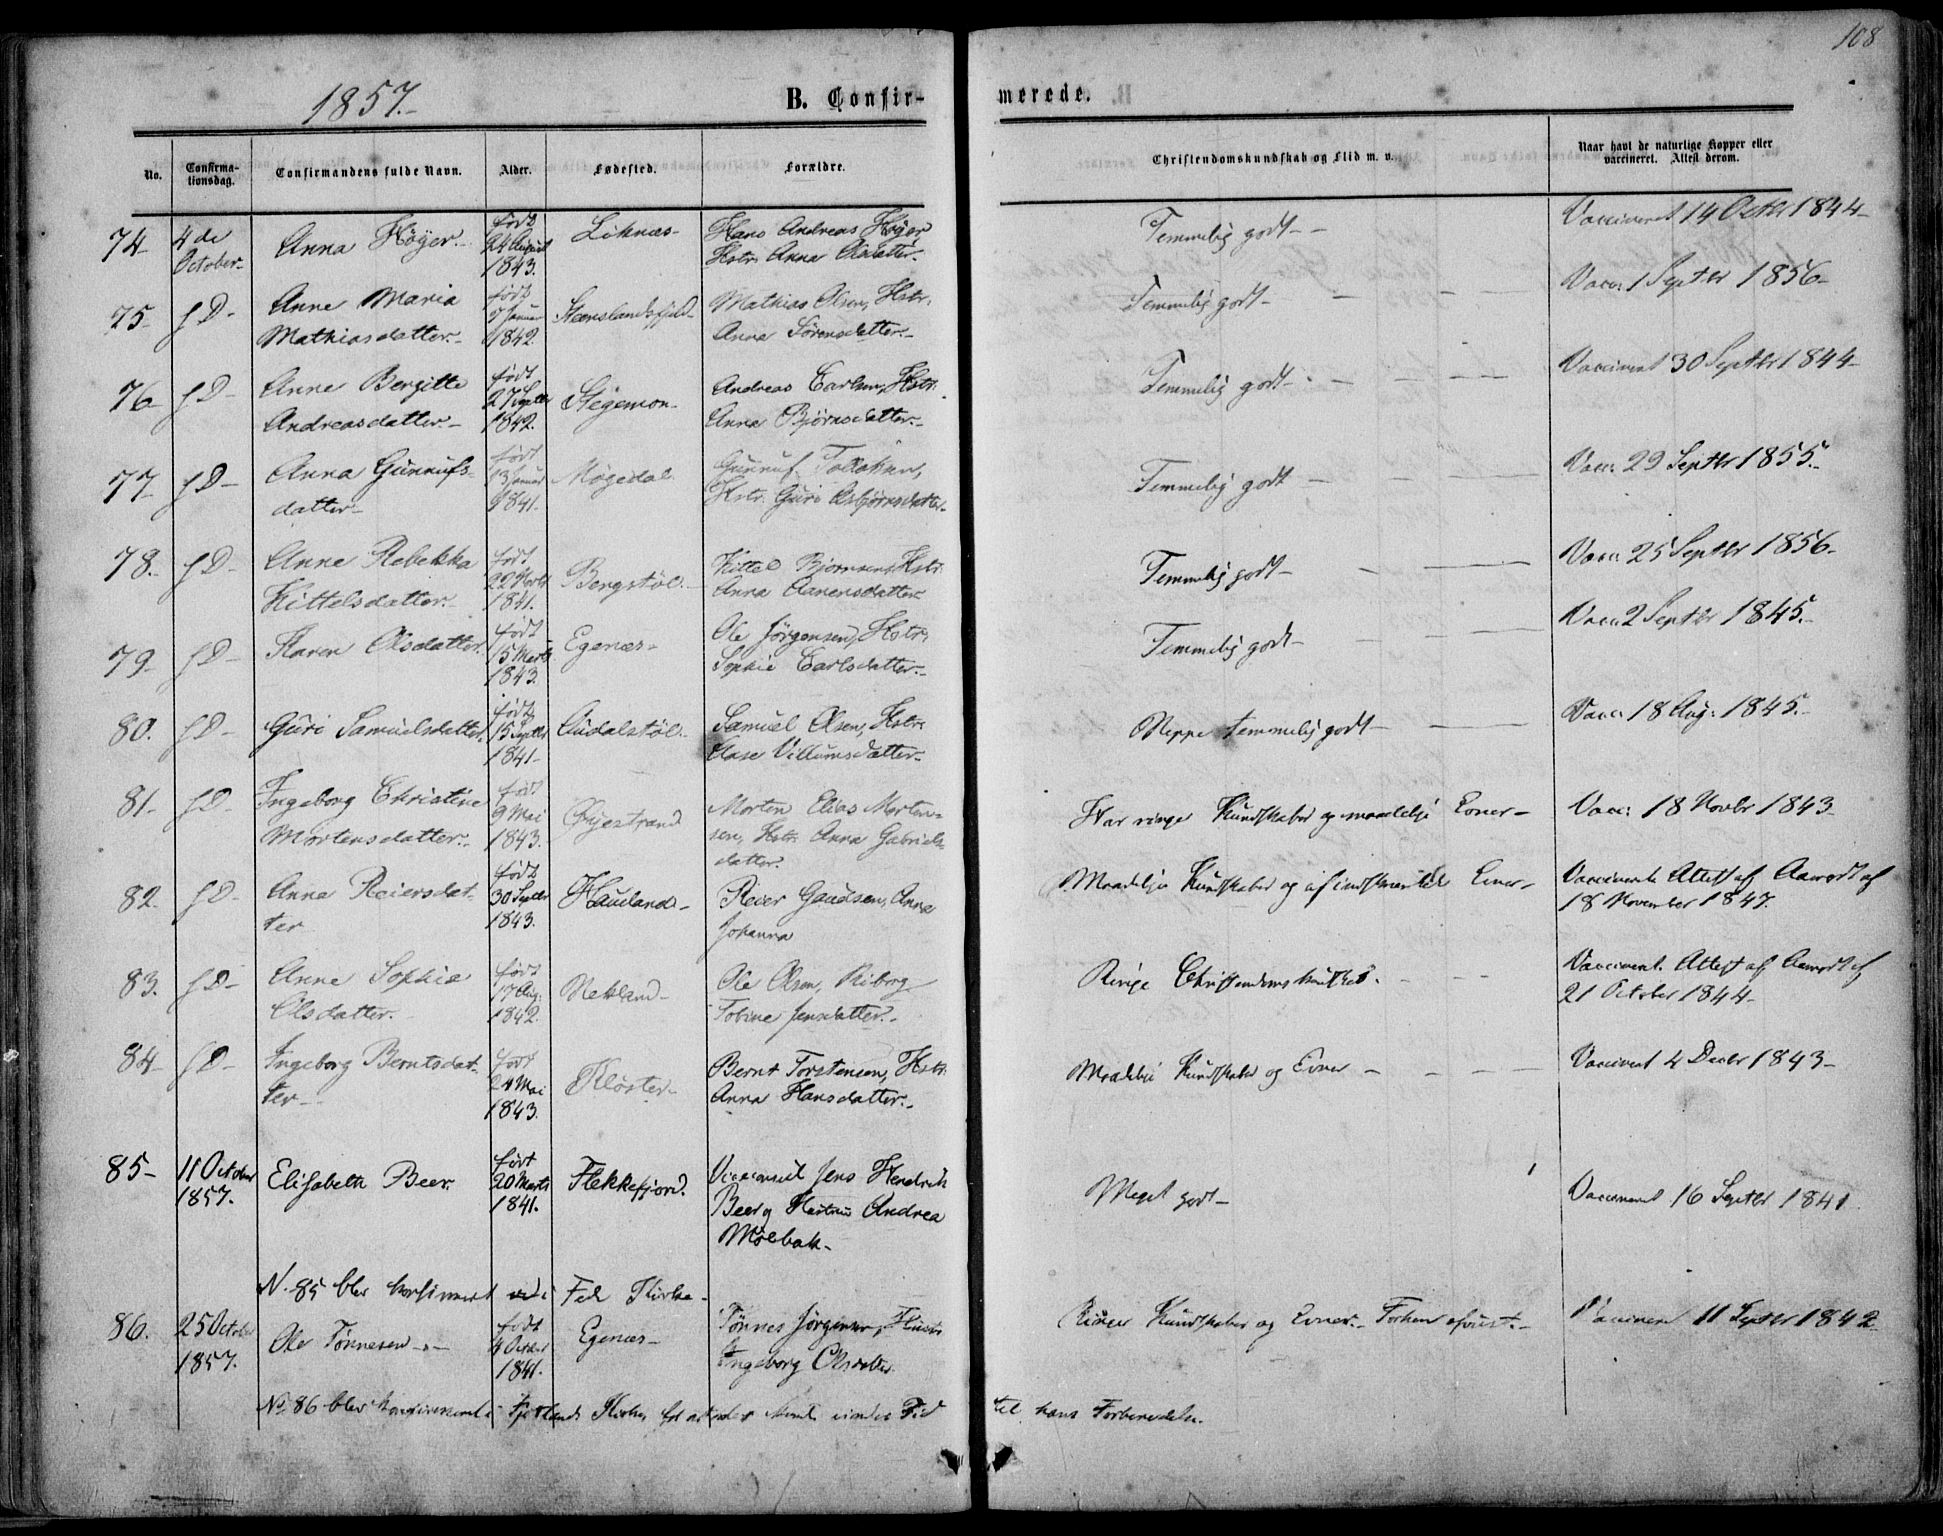 108
1857.-
B. Confir-
merede.
No.
Confirma-
tionsdag.
Confirmandens fulde Navn.
Alder.
Fødested.
Forældre.
Christendomskundskab og Flid m. v.
Naar havt de naturlige Kopper eller
vaccineret. Attest derom.
74- 4de October- Anna Höyer.- født 24 August 1843. Liknæs- Hans Andreas Höyer Hstr. Anna Olsdatter.- Temmelig godt- - Vaccineret 14 Octbr 1844-
75- Anne Maria Mathiasdatter.- født Januar 1842. Steenslandsfjeld- Mathias Olsen, Hstr. Anna Sörensdatter.- Temmelig godt- Vacc: 1 Septbr 1856-
76- Anne Bergitte Andreasdatter.- født 27 Septbr 1842. Stegemon- Andreas Carlsen, Hstr. Anna Björnsdatter.- Temmelig godt- Vaccineret 30 Septbr 1844-
77- Anna Gunnufs- datter- født Januar 1841. Mögedal. Gunnuf Hstr. Guri Asbjörnsdatter- Temmelig godt- Vacc: 29 Septbr 1855.-
78.- Anne Rebekka Kittelsdatter.- født 20 1841. Bergstöl.- Kittel Björnsen, Hstr. Anna Aanensdatter- Temmelig godt- Vacc: 25 Septbr 1856-
79- Karen Olsdatter. født 15 Marts 1843. Egenæs- Ole Jörgensen, Hstr. Sophie Carlsdatter.- Temmelig godt- Vacc: 2 Septbr 1845.-
80. Guri Samuelsdatter. født 15 Septbr 1841- Audalstöl.- Samuel Olsen, Hstr. Aase Villumsdatter- Neppe temmelig godt- Vacc: 18 Aug: 1845.-
81.- Ingeborg Christine Mortensdatter.- født 9 Mai 1843. Öyestrand Morten Elias Morten- sen, Hstr. Anna Gabriels- datter. Har ringe Kundskaber og maadelige Evner- Vacc: 18 Novbr 1843-
82.- Anne Reiersdat- ter født 30 Septbr 1843. Hauland- Reier Gaudsen, Anna Johanna Maadelige Kundskaber og Evner- Vaccineret. Attest af Aamodt af 18 November 1847.
83. Anne Sophie Olsdatter.- født 17 Aug: 1842. Nekland- Ole Olsen, Tobine Jensdatter.- Ringe Christendomskundskab. Vaccineret. Attest af Aamodt af 21 October 1844-
84- Ingeborg Berntsdat- ter- født 24 Mai 1843. Klöster- Bernt Torstensen, Hstr. Anna Hansdatter.- Maadelige Kundskaber og Evner - Vaccineret 4 Decbr 1843-
85- 11 October 1857. Elisabeth Beer. født 20 Marts 1841. Flekkefjord. Viceconsul Jens Hendrik Beer og Hustru Andrea Mölbak- Meget godt- Vaccineret 16 Septbr 1841.
N. 85 blev konfirmeret i Fede Kirke-
86. 25 October 1857. Ole Tönnesen - født 4 Octbr 1841. Egenæs- Tönnes Jörgensen, Hustr. Ingeborg Olsdatter. Ringe Kundskaber og Evner.- Vaccineret 11 Septbr 1842-
No. 86 blev konfirmeret i Fjotlands Kirke, Tid
til hans Forberedelse.